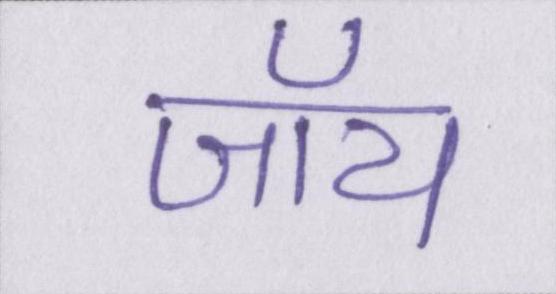 जॉय